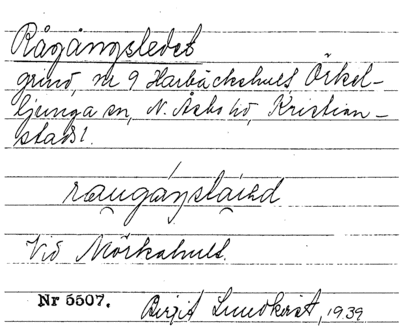 Rågångsledet
grind, nr 9 Harbäckshult, Örkel-
ljunga sn, N. Åsbo hd, Kristian-
stads l.
raugáŋslaiəd
Vid Mörkahult.
Nr 5507. Birgit Lundkvist, 1939